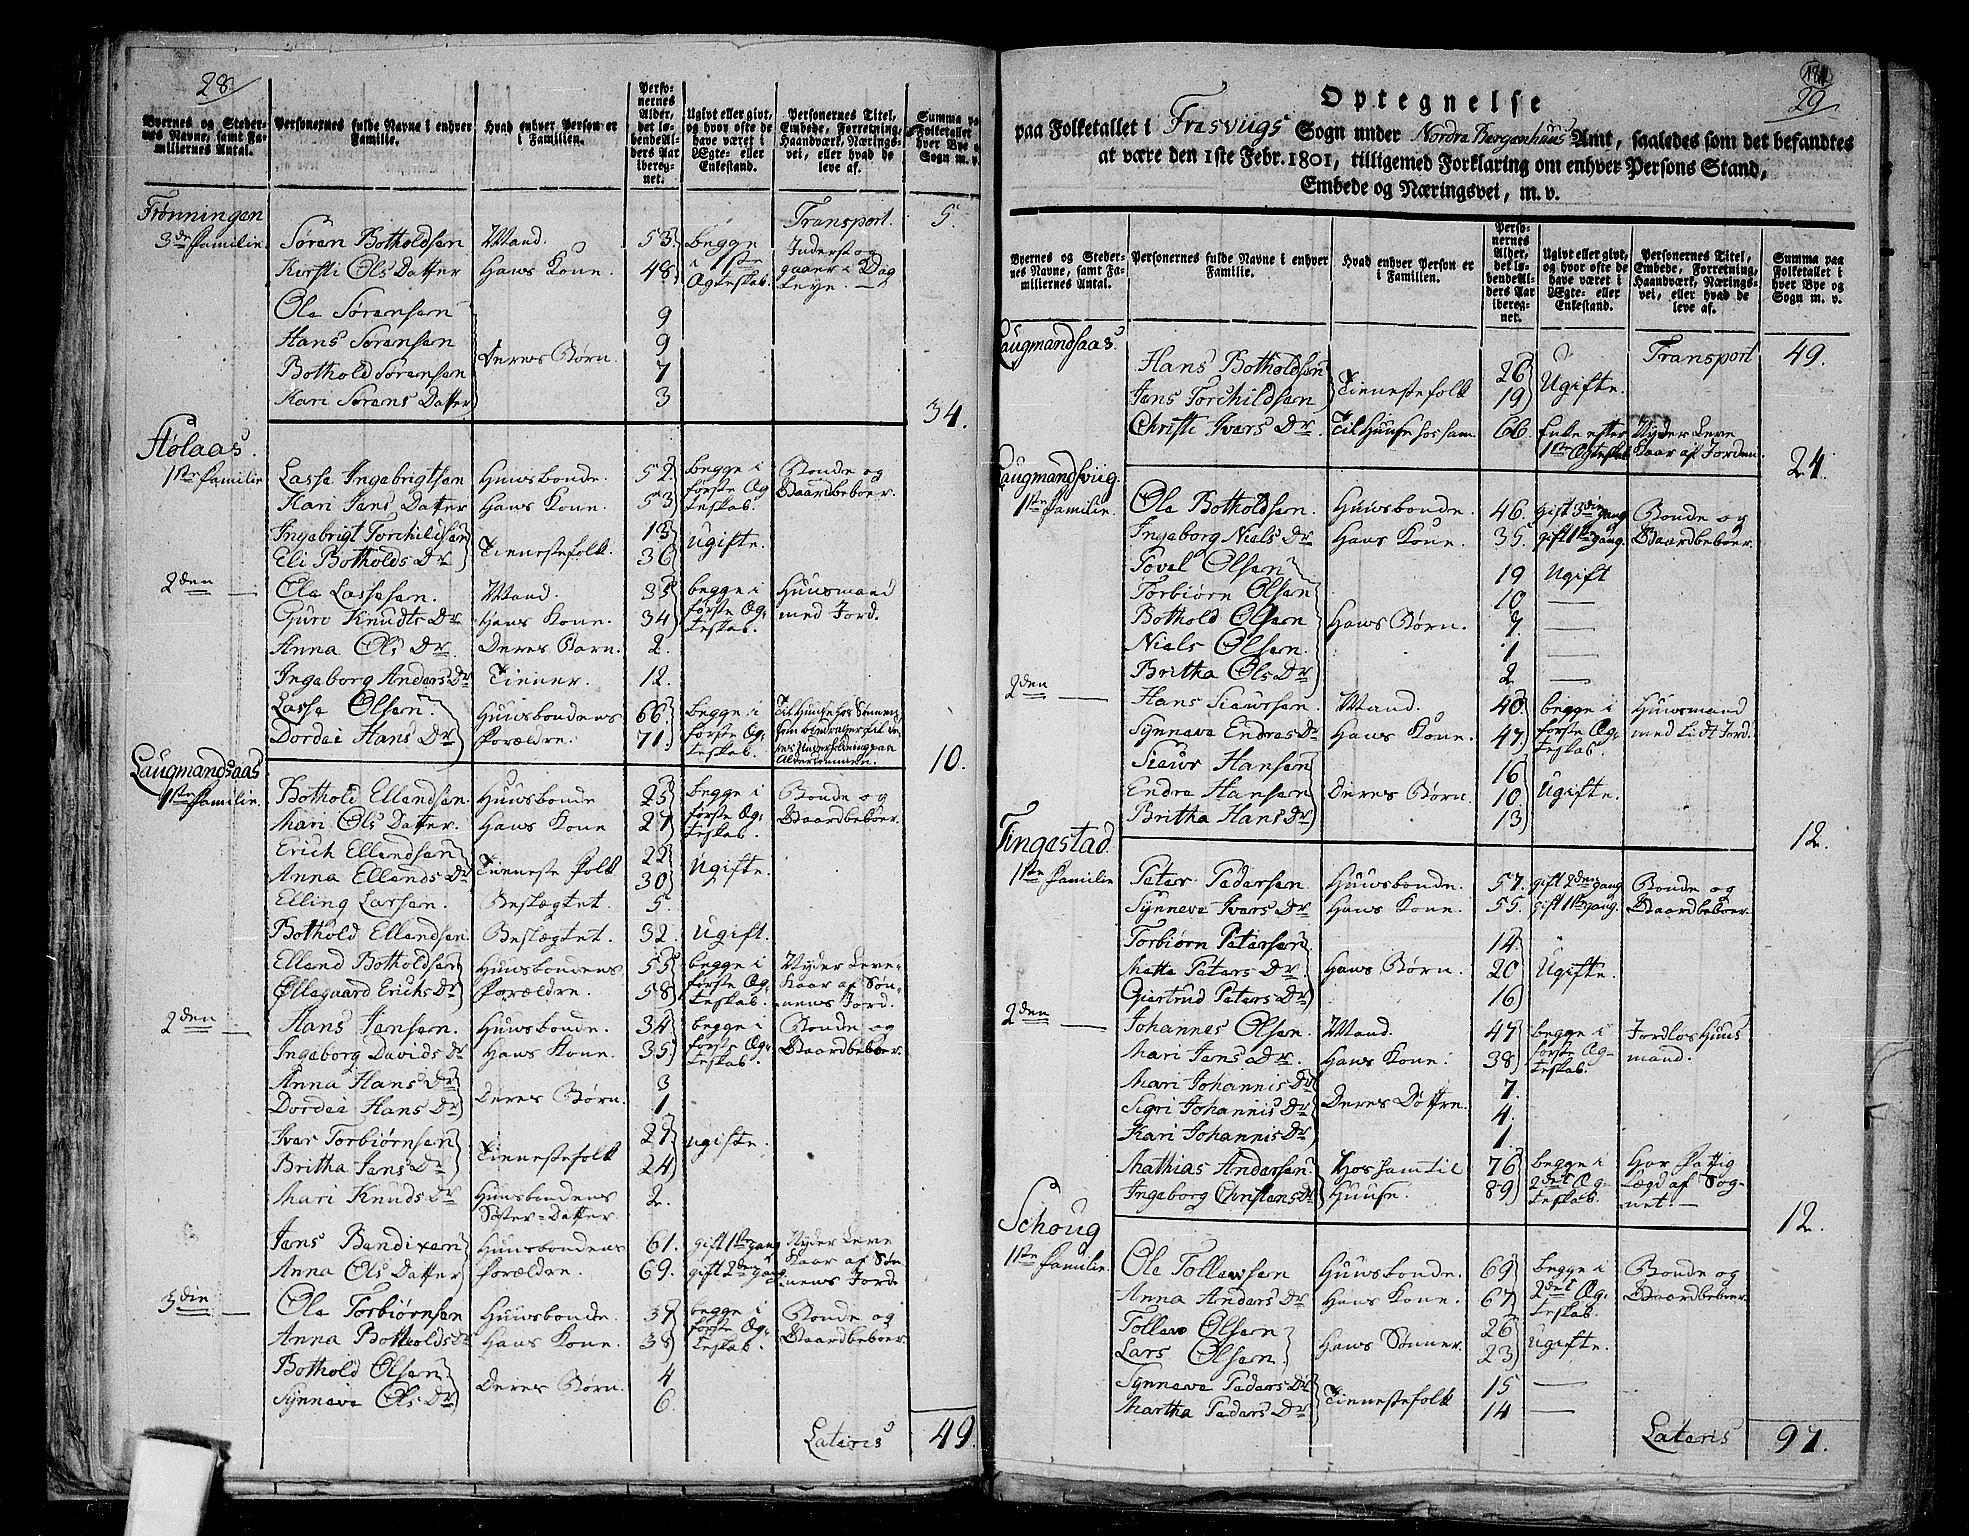 28.
Byernes og Steder-
nes Navne, samt Fa-
miliernes Antal.
Personernes fulde Navne i enhver
Familie.
Hvad enhver Person er
i Familien.
Perso-
nernes
Alder,
det lø-
bendeAl-
ders Aar
ibereg-
net.
Ugivt eller givt,
og hvor ofte de
have været i
Ægte- eller
Enkestand.
Personernes Titel,
Embede, Forretning,
Haandværk, Nærings-
vei, eller hvad de
leve af.
Summa paa
Folketallet
hver Bye og
Sogn m. v.
Frønningen Transport 5.
3de Familie. Søren Botholdsen Mand. 53. begge i 1ste Ægteskab. Inderst og gaaer i Dag Leye.
Kirsti Ols Datter Hans Kone. 48
Ole Sørensen 9
Hans Sørensen Deres Børn. 9
Bothold Sørensen 7
Kari Sørens Datter 3
34.
Stølaas.
1ste Familie Lasse Ingebrigtsen Huusbonde. 52. begge i første Ægteskab. Bonde og Gaardbeboer.
Kari Jens Datter Hans Kone. 53
Ingebrigt Torchildsen Tienestefolk. 13 Ugifte.
Eli Botholds Dr 36
2den Ole Lassesen. Mand. 35 begge i første Ægteskab. Huusmand med Jord.
Guro Knudts Dr Hans Kone. 34
Anna Ols Dr Deres Barn. 2.
Ingeborg Anders Dr Tiener. 12.
Lasse Olsen. Huusbondens Forældre. 66. begge i første Ægteskab. Til Huuse hos Sønnen,
Dordei Hans Dr 71.
10.
Laugmandsaas
1ste Familie. Bothold Ellendsen Huusbonde 25 begge i første Ægteskab. Bonde og Gaardbeboer.
Mari Ols Datter. Hans Kone 27
Erich Ellendsen Tieneste folk 22 Ugifte.
Anna Ellends Dr 30
Elling Larsen. Beslægtet. 5.
Bothold Ellendsen. Beslægtet. 32. Ugift.
Ellend Botholdsen Huusbondens Forældre. 55 begge i første Ægteskab. Nyder Leve Kaar af Sønnens Jord.
Øllegaard Erichs Dr 58
2den Hans Jensen. Huusbonde. 34 begge i første Ægteskab. Bonde og Gaardbeboer.
Ingeborg Davids Dr Hans Kone. 35
Anna Hans Dr Deres Børn. 3
Dordei Hans Dr 1
Iver Torbiørnsen Tienestefolk 27 Ugifte.
Britha Jens Dr 24
Mari Knuds Dr Huusbondens Søster-Datter. 2.
Jens Bendixen Huusbondens Forældre. 61. gift 1ste gang Nyder Leve Kaar af Sønnens Jord.
Anna Ols Datter 69. gift 2den gang
3die Ole Torbiørnsen Huusbonde. 37 begge i første Ægteskab. Bonde og Gaardbeboer.
Anna Botholds Dr Hans Kone. 38
Bothold Olsen Deres Børn. 4
Synneve Ols Dr 6.
Lateris 49.
29
Optegnelse
paa Folketallet i Fresviigs Sogn under Nordre Bergenhuus Amt, saaledes som det befandtes
at være den 1ste Febr. 1801, tilligemed Forklaring om enhver Persons Stand,
Embede og Næringsvei, m. v.
Byernes og Steder-
nes Navne, samt Fa-
miliernes Antal.
Personernes fulde Navne i enhver
Familie.
Hvad enhver Person er
i Familien.
Perso-
nernes
Alder,
det lø-
bendeAl-
ders Aar
ibereg-
net.
Ugivt eller givt,
og hvor ofte de
have været i
Ægte- eller
Enkestand.
Personernes Titel,
Embede, Forretning,
Haandværk, Nærings-
vei, eller hvad de
leve af.
Summa paa
Folketallet i
hver Bye og
Sogn m. v.
Laugmandsaas. Transport 49.
Hans Botholdsen Tienestefolk 26 Ugifte.
Jens Torchildsen 19
Christi Ivers Dr. Til Huuse hos ham. 66. Enke efter 1ste Ægteskab Nyder Leve Kaar af Jorden.
24.
Laugmandsviig.
1ste Familie. Ole Botholdsen. Huusbonde. 46. gift 3die gang Bonde og Gaardbeboer.
Ingeborg Niels Dr Hans Kone. 35. gift 1ste gang.
Povel Olsen 19 Ugift
Torbiørn Olsen 10
Bothold Olsen Hans Børn. 7.
Niels Olsen. 1
Britha Ols Dr 2
2den Hans Siursen Mand. 40. begge i første Ægteskab. Huusmand med Lidt Jord.
Synneve Endres Dr Hans Kone. 47
Siur Hansen 16
Endre Hansen Deres Børn. 10 Ugifte.
Britha Hans Dr 13
12.
Tingestad.
1ste Familie Peter Pedersen Huusbonde. 57. gift 2den gang Bonde og Gaardbeboer.
Synneve Ivers Dr Hans Kone. 55. gift 1ste gang.
Torbiørn Petersen 14.
Mette Peters Dr Hans Børn. 20 Ugifte.
Giertrud Peters Dr 16
2den Johannes Olsen. Mand. 47 begge i første Ægteskab. Jordløs Huusmand.
Mari Jens Dr. Hans Kone. 38
Mari Johannis Dr 7.
Sigri Johannis Dr Deres Døttre. 4.
Kari Johannis Dr 1.
Mathias Andersen Hos ham til Huuse. 76 begge i 2det Ægteskab. Har Fattig Lægd af Sognet.
Ingeborg Christens Dr 89
12.
Schoug
1ste Familie. Ole Tollevsen Huusbonde. 69 begge i 2det Ægteskab. Bonde og Gaardbeboer.
Anna Anders Dr Hans Kone. 67
Tollev Olsen Hans Sønner. 26 Ugifte.
Lars Olsen. 23
Synneve Peders Dr Tienestefolk 15
Martha Peders Dr 14
Lateris 97.